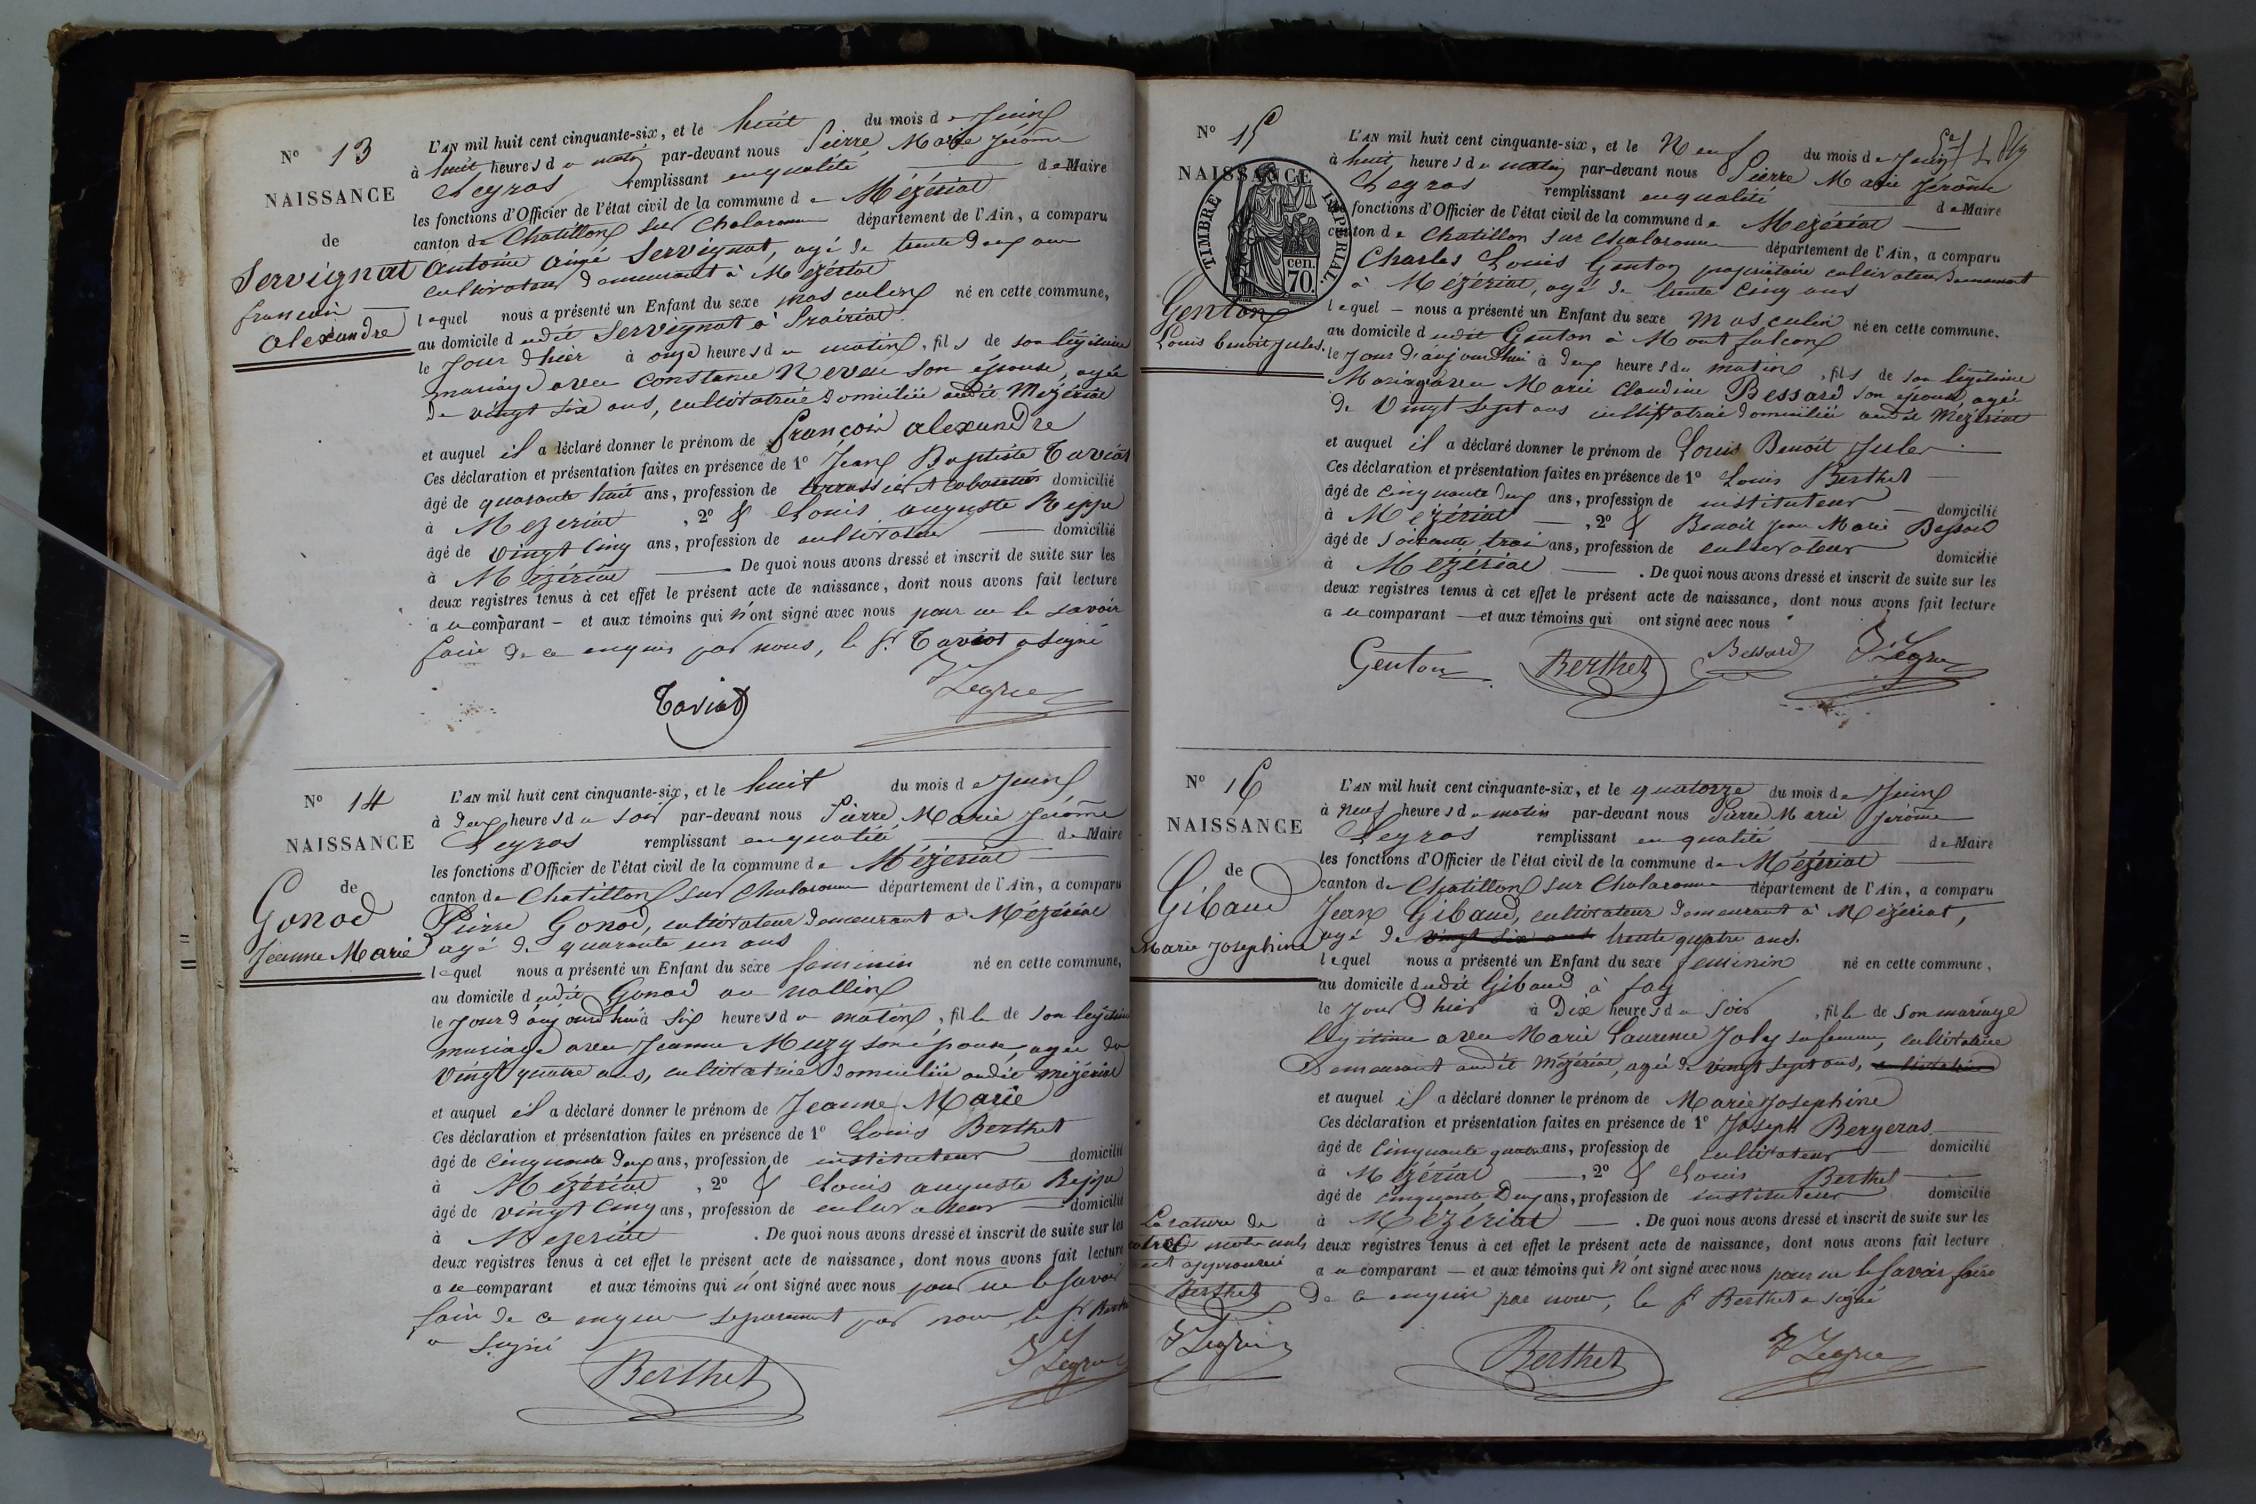 N° 13
NAISSANCE
de
Servignat
françois
alexandre
L'AN mil huit cent cinquante-six, et le huit du mois de Juin
à huit heures du matin par-devant nous Pierre Marie Jérôme
remplissant en qualité de Maire
les fonctions d'Officier de l'état civil de la commune de Mézériat
canton de Chatillon sur Chalaronne département de l'Ain, a comparu
antoine aimé Servignat, agé de trente deux ans
cultivateur demeurant à Mézériat
lequel nous a présenté un Enfant du sexe masculin né en cette commune,
au domicile dudit Servignat à
le Jour d'hier à onze heures du matin, fils de son légitime
mariage avec Constance Neveu son épouse, agée
de vingt six ans, cultivatrice domiciliée audit Mézériat
et auquel il a déclaré donner le prénom de françois alexandre
Ces déclaration et présentation faites en présence de 1° Jean Baptiste Taviot
âgé de quarante huit ans, profession de domicilié
à Mézériat, 2° & Louis auguste
âgé de vingt cinq ans, profession de cultivateur domicilié
à Mézériat De quoi nous avons dressé et inscrit de suite sur les
deux registres tenus à cet effet le présent acte de naissance, dont nous avons fait lecture
a ce comparant - et aux témoins qui n'ont signé avec nous pour ne le savoir
faire de ce enquis par nous, le sr. Taviot a signé
Taviot
N° 14
NAISSANCE
de
Gonod
Jeanne Marie
L'AN mil huit cent cinquante-six, et le huit du mois de Juin
à deux heures du soir par-devant nous Pierre Marie Jérôme
remplissant en qualité de Maire
les fonctions d'Officier de l'état civil de la commune de Mézériat
canton de Chatillon sur Chalaronne département de l'Ain, a comparu
Pierre Gonod, cultivateur demeurant à Mézériat
agé de quarante un ans
lequel nous a présenté un Enfant du sexe feminin né en cette commune,
au domicile dudit Gonod au
le Jour d'aujourd'hui à six heures du matin, fille de son legitime
mariage avec Jeanne Muzy son épouse, agée de
vingt quatre ans, cultivatrice domiciliée audit mézériat
et auquel il a déclaré donner le prénom de Jeanne Marie
Ces déclaration et présentation faites en présence de 1° Louis Berthet
âgé de cinquante deux ans, profession de instituteur domicilié
à Mézériat, 2° & Louis auguste
âgé de vingt cinq ans, profession de cultivateur domicilié
à Mézériat. De quoi nous avons dressé et inscrit de suite sur les
deux registres tenus à cet effet le présent acte de naissance, dont nous avons fait lecture
a ce comparant et aux témoins qui n'ont signé avec nous pour ne le savoir
faire de ce enquis separement par nous, le sr.
a signé
Berthet
N° 15
NAISSANCE
TIMBRE IMPÉRIAL.
cen.
70.
Genton
Louis benoit Jules.
L'AN mil huit cent cinquante-six, et le Neuf du mois de Juin
à huit heures du matin par-devant nous Pierre Marie Jérôme
remplissant en qualité de Maire
fonctions d'Officier de l'état civil de la commune de Mézériat
canton de Chatillon sur Chalaronne département de l'Ain, a comparu
Charles Louis Genton propriétaire cultivateur demeurant
à Mézériat, agé de trente cinq ans
lequel - nous a présenté un Enfant du sexe masculin né en cette commune.
au domicile dudit Genton à Montfalcon
le Jour d'aujourd'hui à deux heures du matin, fils de son légitime
Mariage avec Marie Claudine Bessard son épouse, agée
de vingt sept ans cultivatrice domiciliée audit Mézériat
et auquel il a déclaré donner le prénom de Louis Benoit Jules
Ces déclaration et présentation faites en présence de 1° Louis Berthet
âgé de cinquante deux ans, profession de instituteur
à Mézériat, 2° & Benoit Jean Marie Bessard domicilié
âgé de soixante trois ans, profession de cultivateur domicilié
à Mézériat. De quoi nous avons dressé et inscrit de suite sur les
deux registres tenus à cet effet le présent acte de naissance, dont nous avons fait lecture
a ce comparant - et aux témoins qui ont signé avec nous
Genton Berthet Bessard
N° 16
NAISSANCE
de
Gibaud
Marie Josephine
L'AN mil huit cent cinquante-six, et le quatorze du mois de Juin
à neuf heures du matin par-devant nous Pierre Marie Jérôme
remplissant en qualité de Maire
les fonctions d'Officier de l'état civil de la commune de Mézériat
canton de Chatillon sur Chalaronne département de l'Ain, a comparu
Jean Gibaud, cultivateur demeurant à Mézériat,
agé de vingt six ans trente quatre ans.
lequel nous a présenté un Enfant du sexe feminin né en cette commune,
au domicile dudit Gibaud à fay
le Jour d'hier à Dix heures du soir, fille de son mariage
légitime avec Marie Laurence Joly sa femme, cultivatrice
Demeurant audit Mézériat, agée de vingt sept ans, cultivatrice
et auquel il a déclaré donner le prénom de Marie Josephine
Ces déclaration et présentation faites en présence de 1° Joseph Bergeras
âgé de cinquante quatre ans, profession de cultivateur domicilié
à Mézériat, 2° & Louis Berthet
âgé de cinquante Deux ans, profession de instituteur domicilié
à Mézériat. De quoi nous avons dressé et inscrit de suite sur les
deux registres tenus à cet effet le présent acte de naissance, dont nous avons fait lecture
a ce comparant - et aux témoins qui n'ont signé avec nous pour ne le savoir faire
de ce enquis par nous, le sr Berthet a signé
La rature de
mots nuls
est approuvée
Berthet
Berthet